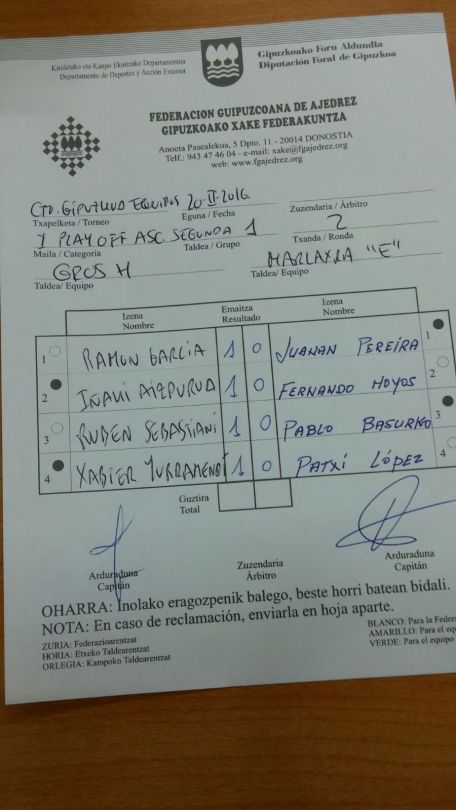 Kiroletako eta Kanpo Ekintzako Departamentua
Departamento de Deportes y Acción Exterior
Gipuzkoako Foru Aldundia
Diputación Foral de Gipuzkoa
FEDERACION GUIPUZCOANA DE AJEDREZ
GIPUZKOAKO XAKE FEDERAKUNTZA
Anoeta Pasealekua, 5 Dpto. 11 - 20014 DONOSTIA
Telf.: 943 47 46 04 - e-mail: xake@fgajedrez.org
web: www.fgajedrez.org
CTO. GIPUZKOA EQUIPOS 20-II-2016
Txapelketa / Torneo Eguna / Fecha Zuzendaria / Árbitro
PLAY OFF ASC. SEGUNDA 1 2
Maila / Categoria Taldea / Grupo Txanda / Ronda
GROS H MARLAXKA "E"
Taldea/ Equipo Taldea/ Equipo
Izena Emaitza Izena
Nombre Resultado Nombre
1 RAMON GARCIA 1 0 JUANAN PEREIRA 1
2 IÑAUI AIZPURUA 1 0 FERNANDO HOYOS 2
3 RUBEN SEBASTIANI 1 0 PABLO BASURKO 3
4 XABIER IURRAMENDI 1 0 PATXI LÓPEZ 4
Guztira
Total
Arduraduna Zuzendaria Arduraduna
Capitán Árbitro Capitán
OHARRA: Inolako eragozpenik balego, beste horri batean bidali.
NOTA: En caso de reclamación, enviarla en hoja aparte.
ZURIA: Federazioarentzat
HORIA: Etxeko Taldearentzat
ORLEGIA: Kampoko Taldearentzat
BLANCO: Para la Feder
AMARILLO: Para el equ
VERDE: Para el equipo